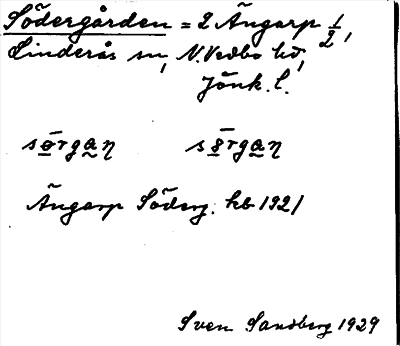 Södergården = 2 Ängarp 1/2,
Linderås sn, N. Vedbo hd,
Jönk. l.
Ängarp Söderg. hb 1921
Sven Sandberg 1929